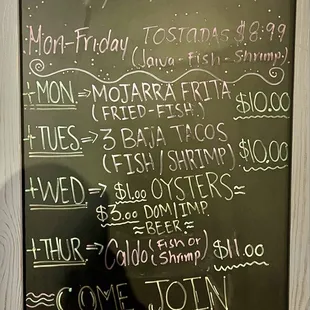 Mon-Friday TOSTADAS $8.99
(Jaiva - Fish - Shrimp)
+MON. ⇒ MOJARRA FRITA
(FRIED-FISH.) $10.00
+TUES ⇒ 3 BAJA TACOS
(FISH/SHRIMP) $10.00
+WED ⇒ $1.00 OYSTERS
$3.00 DOM/IMP.
≈BEER≈
+THUR. ⇒ Caldo (Fish or Shrimp) $11.00
COME JOIN